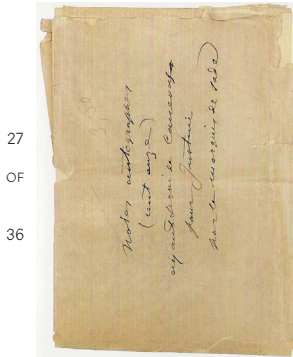 27
OF
36
Notes autographes
(cent onze)
ayant servi de Canevas
pour Justine
par le marquis de Sade